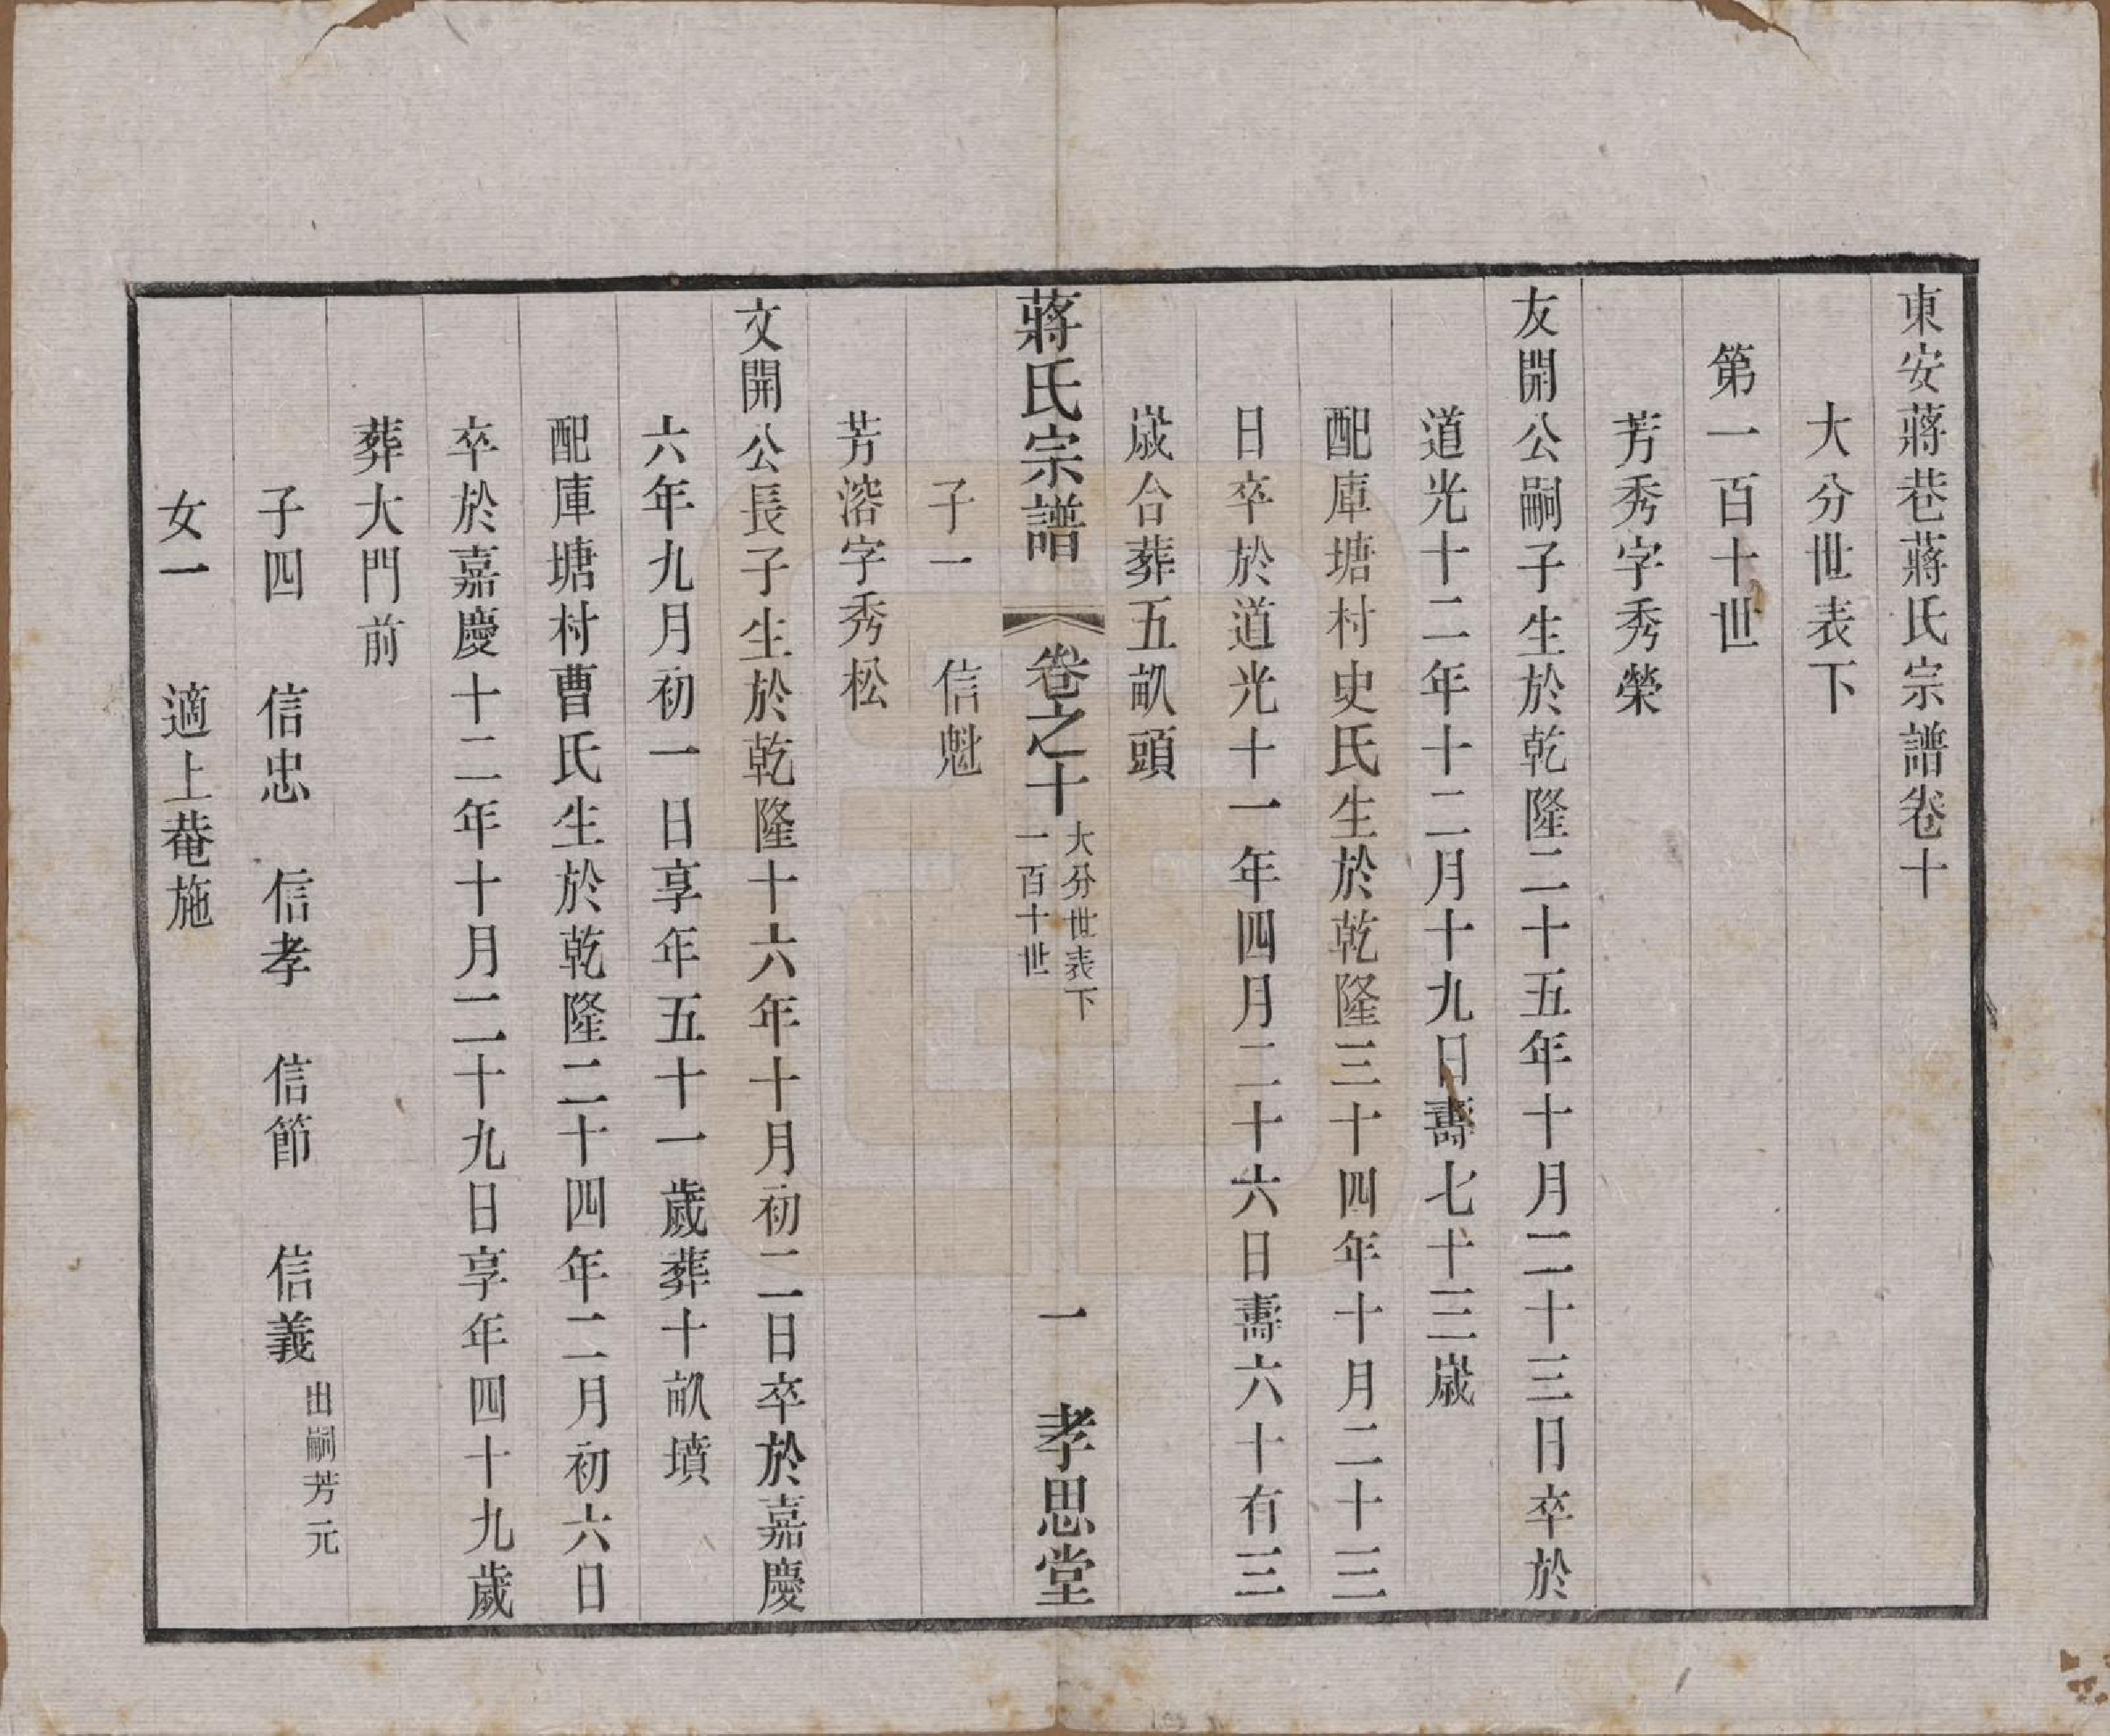 東安蔣巷蔣氏宗譜卷十
大分世表下
第一百十世
芳秀字秀榮
友開公嗣子生於乾隆二十五年十月二十三日卒於
道光十二年十二月十九日壽七十三歲
配庫塘村史氏生於乾隆三十四年十月二十三
日卒於道光十一年四月二十六日壽六十有三
歲合葬五畝頭
蔣氏宗譜 卷之十 大分世表下 一百十世 一 孝思堂
子一 信魁
芳溶字秀松
文開公長子生於乾隆十六年十月初二日卒於嘉慶
六年九月初一日享年五十一歲葬十畝墳
配庫塘村曹氏生於乾隆二十四年二月初六日
卒於嘉慶十二年十月二十九日享年四十九歲
葬大門前
子四 信忠 信孝 信節 信義 出嗣芳元
女一 適上菴施